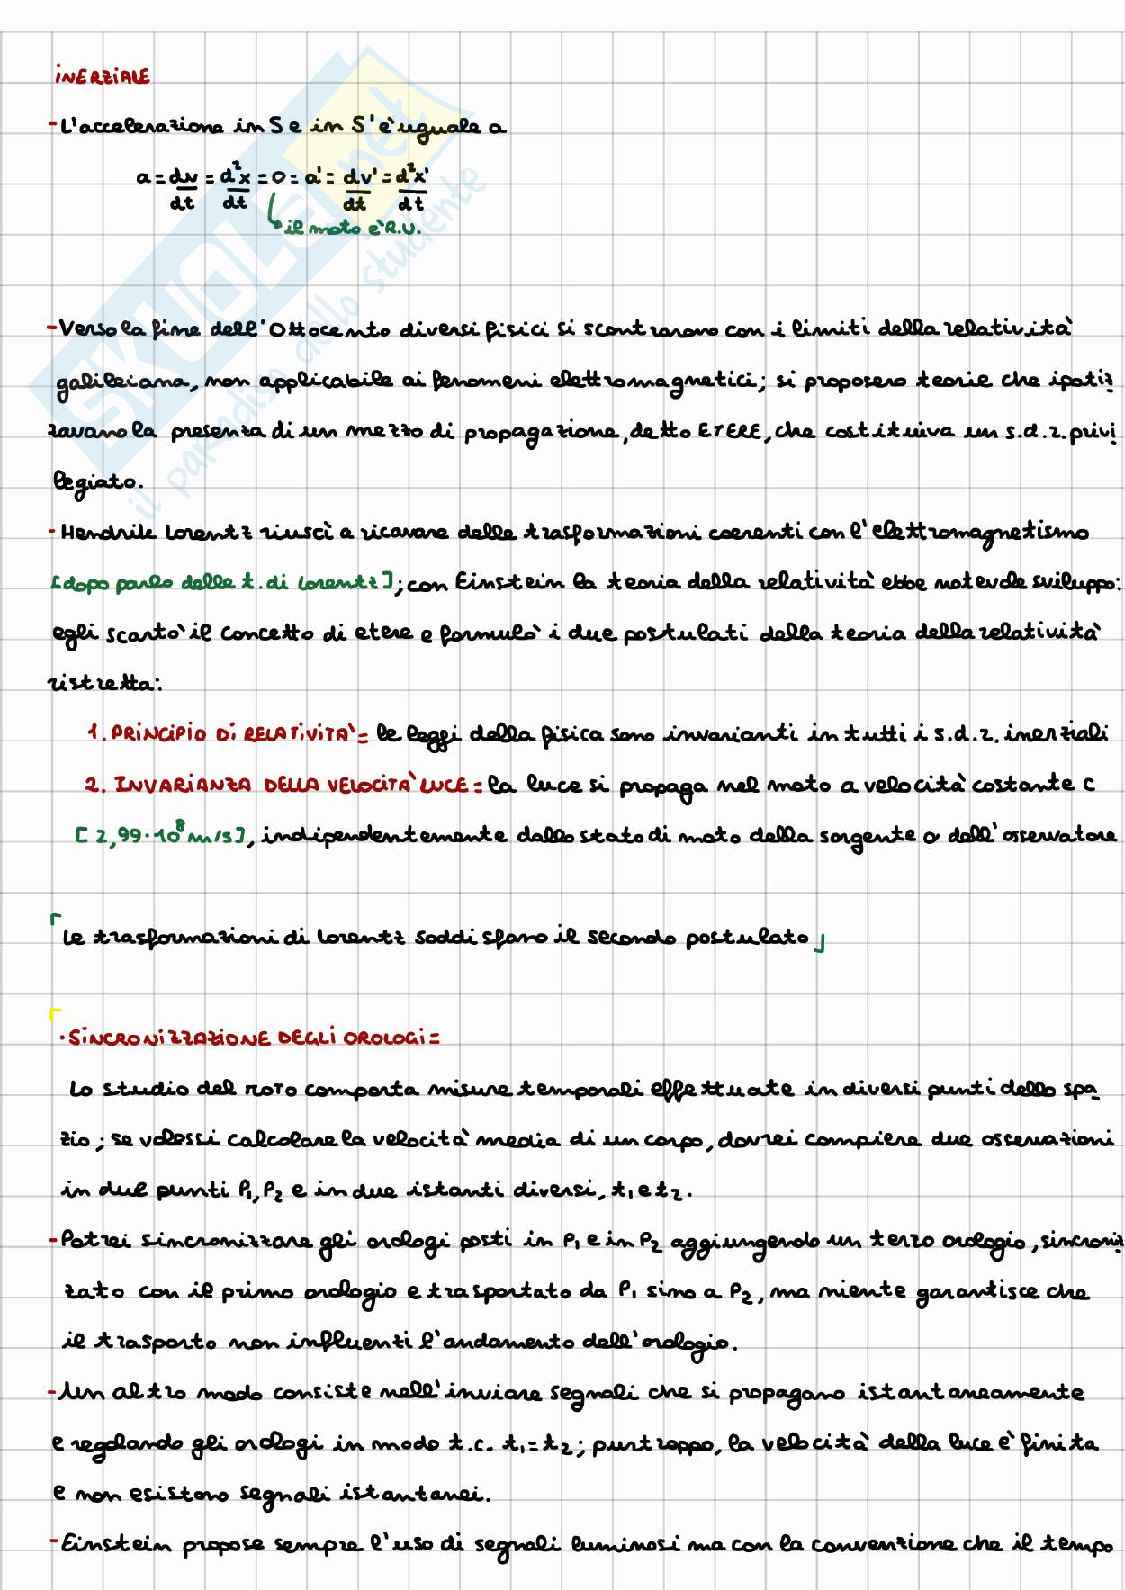 INERZIALE
- L'accelerazione in S e in S' è uguale a
a = dv/dt = d²x/dt = 0 = a' = dv'/dt = d²x'/dt
il moto è R.U.
- Verso la fine dell'Ottocento diversi fisici si scontrarono con i limiti della relatività
galileiana, non applicabile ai fenomeni elettromagnetici; si proposero teorie che ipotiz
zavano la presenza di un mezzo di propagazione, detto ETERE, che costituiva un s.d.r. privi
legiato.
- Hendrik Lorentz riuscì a ricavare delle trasformazioni coerenti con l'elettromagnetismo
[dopo parlo delle t. di Lorentz]; con Einstein la teoria della relatività ebbe notevole sviluppo:
egli scartò il concetto di etere e formulò i due postulati della teoria della relatività
ristretta:
1. PRINCIPIO DI RELATIVITÀ = le leggi della fisica sono invarianti in tutti i s.d.r. inerziali
2. INVARIANZA DELLA VELOCITÀ LUCE = la luce si propaga nel moto a velocità costante c
[2,99·10⁸ m/s], indipendentemente dallo stato di moto della sorgente o dell'osservatore
Le trasformazioni di Lorentz soddisfano il secondo postulato
· SINCRONIZZAZIONE DEGLI OROLOGI =
Lo studio del moto comporta misure temporali effettuate in diversi punti dello spa
zio; se volessi calcolare la velocità media di un corpo, dovrei compiere due osservazioni
in due punti P₁, P₂ e in due istanti diversi, t₁ e t₂.
- Potrei sincronizzare gli orologi posti in P₁ e in P₂ aggiungendo un terzo orologio, sincroniz
zato con il primo orologio e trasportato da P₁ sino a P₂, ma niente garantisce che
il trasporto non influenzi l'andamento dell'orologio.
- Un altro modo consiste nell'inviare segnali che si propagano istantaneamente
e regolando gli orologi in modo t.c. t₁ = t₂; purtroppo, la velocità della luce è finita
e non esistono segnali istantanei.
- Einstein propose sempre l'uso di segnali luminosi ma con la convenzione che il tempo
SKUOLA.net
il paradiso dello studente